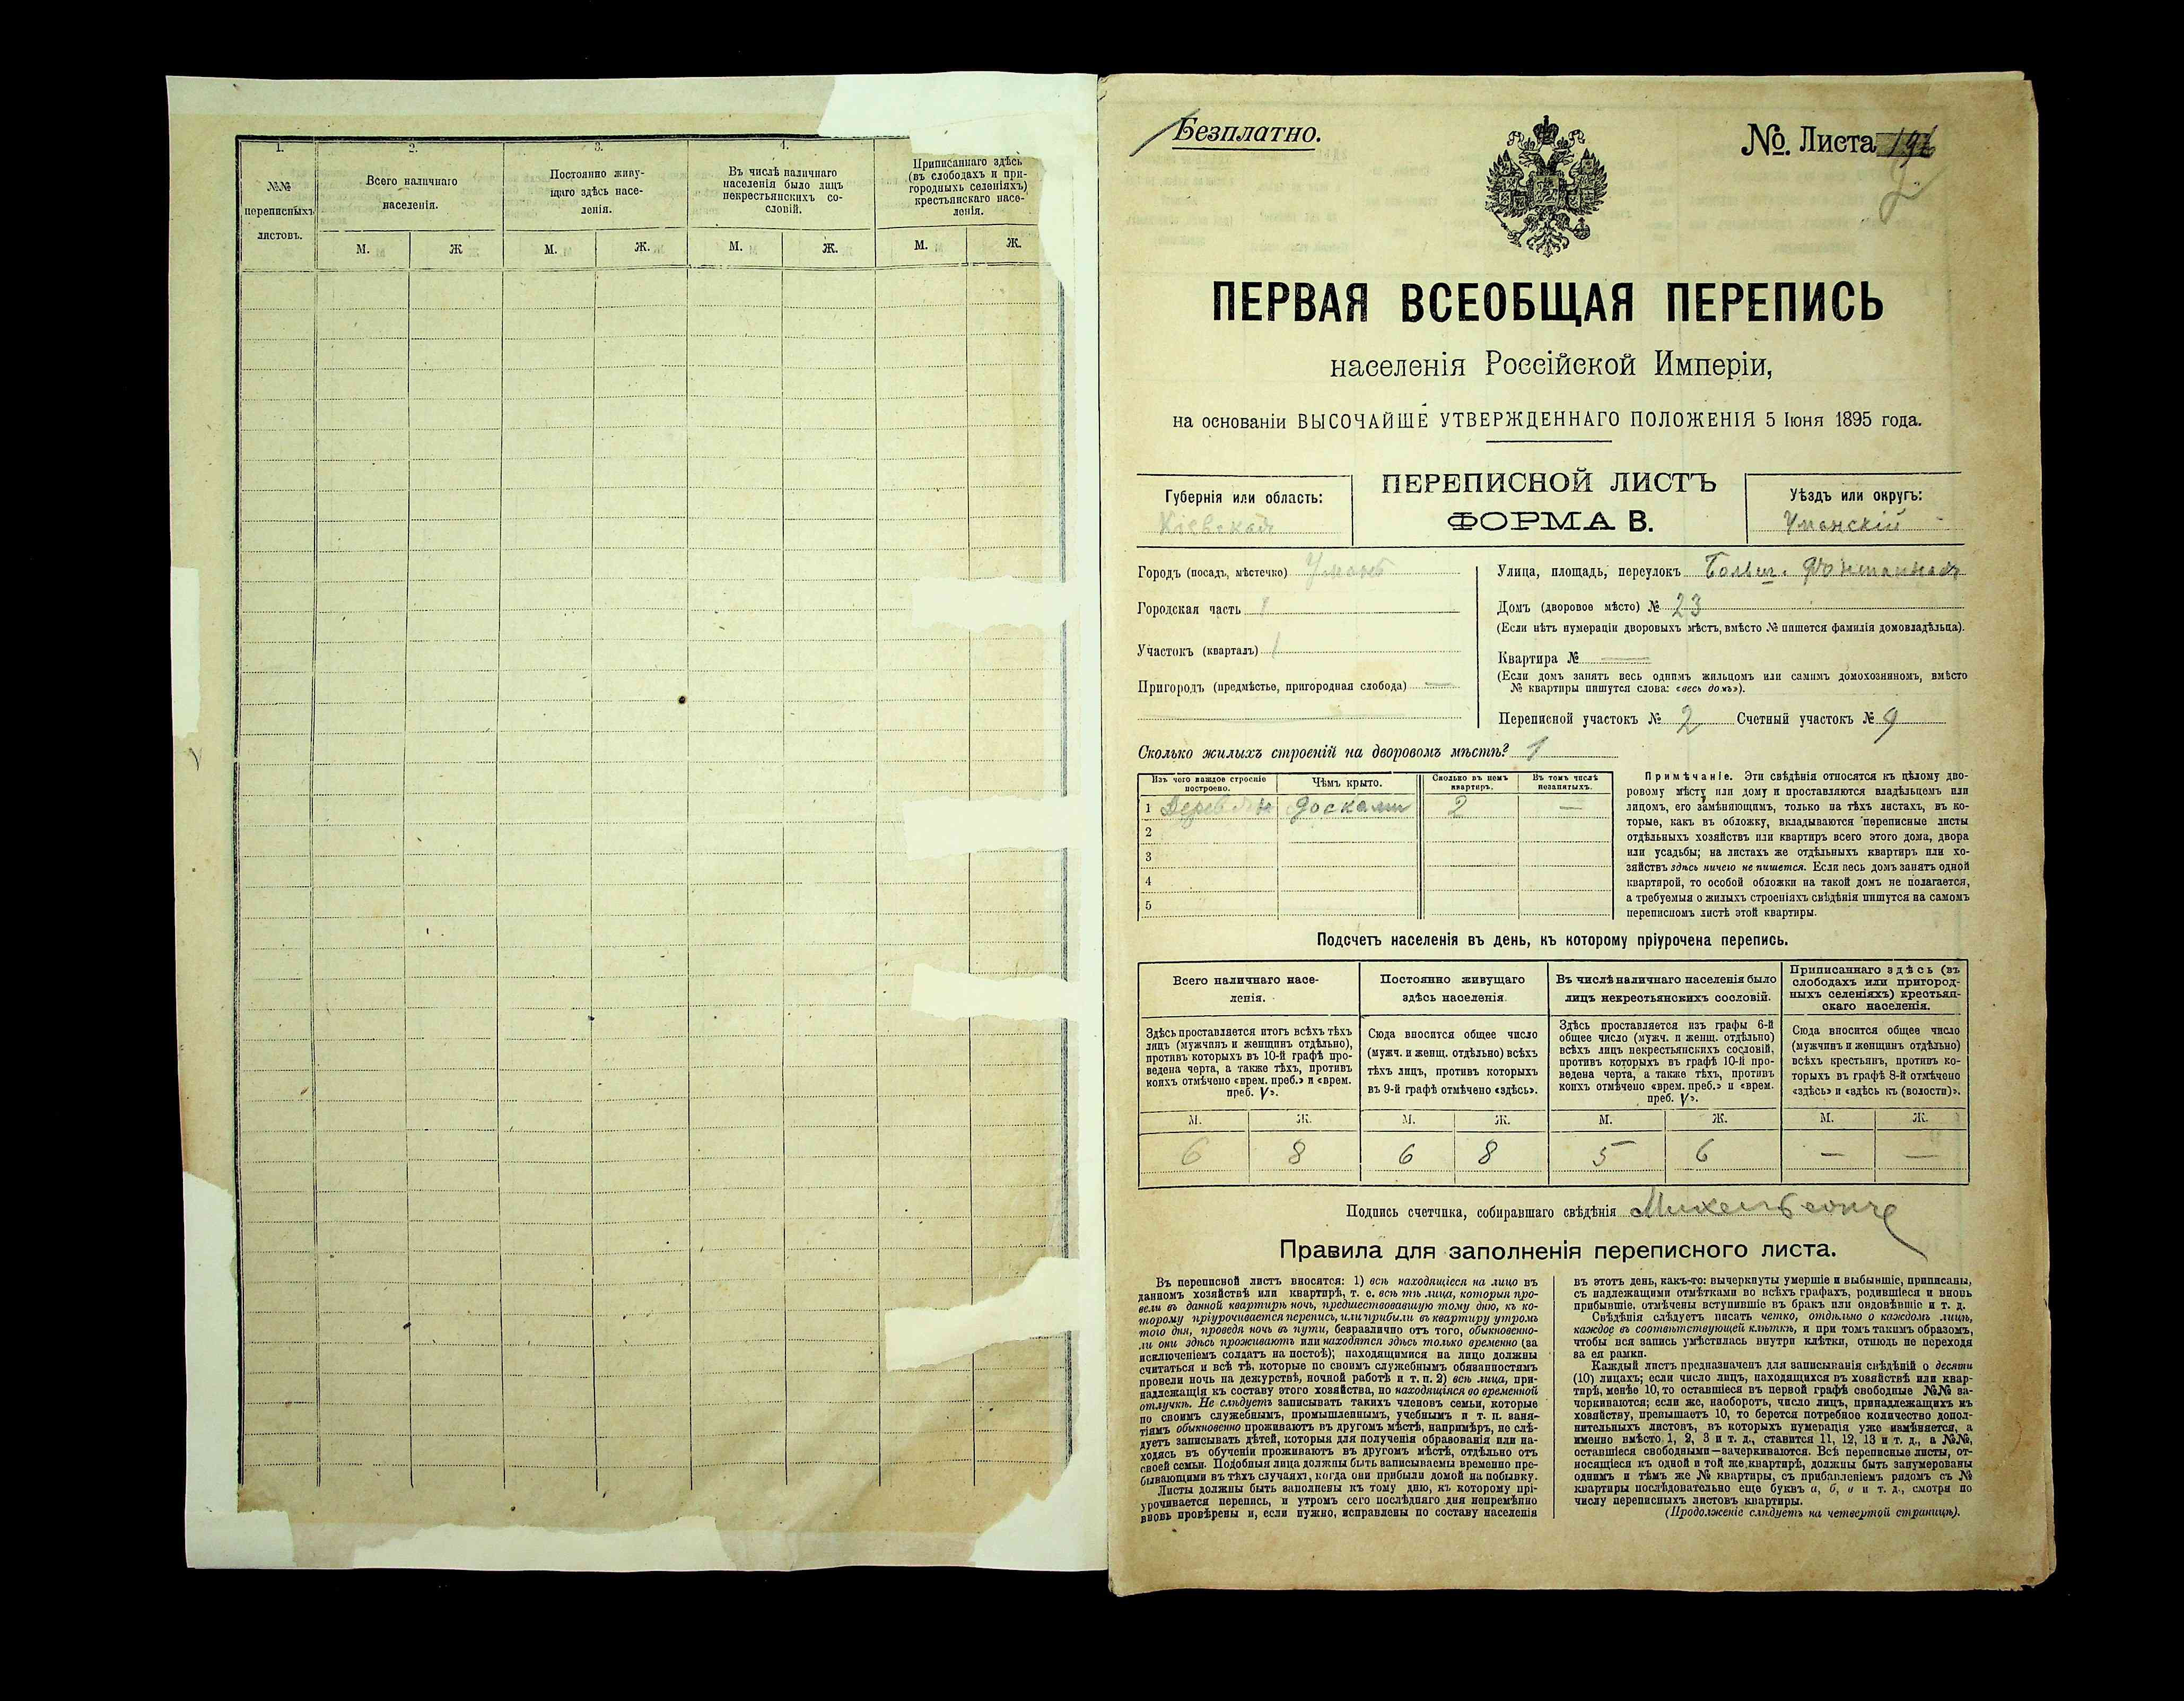 1.
№№
переписныхъ
листовъ.
2.
Всего наличнаго
населенія.
М.
Ж
3.
Постоянно живу-
щаго здѣсь насе-
ленія.
М.
Ж.
4.
Въ числѣ наличнаго
населенія было лицъ
некрестьянскихъ со-
словій.
М.
Ж.
Приписаннаго здѣсь
(въ слободахъ и при-
городныхъ селеніяхъ)
крестьянскаго насе-
ленія.
М.
Ж.
Безплатно.
№. Листа
2
ПЕРВАЯ ВСЕОБЩАЯ ПЕРЕПИСЬ
населенія Россійской Имперіи,
на основаніи ВЫСОЧАЙШЕ УТВЕРЖДЕННАГО ПОЛОЖЕНІЯ 5 Іюня 1895 года.
Губернія или область:
Кіевская
ПЕРЕПИСНОЙ ЛИСТЪ
ФОРМА В.
Уѣздъ или округъ:
Уманскій
Городъ (посадъ, мѣстечко) Умань
Городская часть 1
Участокъ (кварталъ) 1
Пригородъ (предмѣстье, пригородная слобода) —
Улица, площадь, переулокъ Больш. Фонтанная
Домъ (дворовое мѣсто) № 23
(Если нѣтъ нумераціи дворовыхъ мѣстъ, вмѣсто № пишется фамилія домовладѣльца).
Квартира № —
(Если домъ занятъ весь однимъ жильцомъ или самимъ домохозяиномъ, вмѣсто
№ квартиры пишутся слова: «весь домъ»).
Переписной участокъ № 2 Счетный участокъ № 9
Сколько жилыхъ строеній на дворовомъ мѣстѣ? 1
Изъ чего каждое строеніе
построено.
Чѣмъ крыто.
Сколько въ немъ
квартиръ.
Въ томъ числѣ
незанятыхъ.
1 Деревян досками 2 —
2
3
4
5
Примѣчаніе. Эти свѣдѣнія относятся къ цѣлому дво-
ровому мѣсту или дому и проставляются владѣльцемъ или
лицомъ, его замѣняющимъ, только на тѣхъ листахъ, въ ко-
торые, какъ въ обложку, вкладываются переписные листы
отдѣльныхъ хозяйствъ или квартиръ всего этого дома, двора
или усадьбы; на листахъ же отдѣльныхъ квартиръ или хо-
зяйствъ здѣсь ничего не пишется. Если весь домъ занятъ одной
квартирой, то особой обложки на такой домъ не полагается,
а требуемыя о жилыхъ строеніяхъ свѣдѣнія пишутся на самомъ
переписномъ листѣ этой квартиры.
Подсчетъ населенія въ день, къ которому пріурочена перепись.
Всего наличнаго насе-
ленія.
Постоянно живущаго
здѣсь населенія.
Въ числѣ наличнаго населенія было
лицъ некрестьянскихъ сословій.
Приписаннаго здѣсь (въ
слободахъ или пригород-
ныхъ селеніяхъ) крестьян-
скаго населенія.
Здѣсь проставляется итогъ всѣхъ тѣхъ
лицъ (мужчинъ и женщинъ отдѣльно),
противъ которыхъ въ 10-й графѣ про-
ведена черта, а также тѣхъ, противъ
коихъ отмѣчено «врем. преб.» и «врем.
преб. V».
Сюда вносится общее число
(мужч. и женщ. отдѣльно) всѣхъ
тѣхъ лицъ, противъ которыхъ
въ 9-й графѣ отмѣчено «здѣсь».
Здѣсь проставляется изъ графы 6-й
общее число (мужч. и женщ. отдѣльно)
всѣхъ лицъ некрестьянскихъ сословій,
противъ которыхъ въ графѣ 10-й про-
ведена черта, а также тѣхъ, противъ
коихъ отмѣчено «врем. преб.» и «врем.
преб. V».
Сюда вносится общее число
(мужчинъ и женщинъ отдѣльно)
всѣхъ крестьянъ, противъ ко-
торыхъ въ графѣ 8-й отмѣчено
«здѣсь» и «здѣсь къ (волости)».
М. Ж. М. Ж. М. Ж. М. Ж.
6 8 6 8 5 6 — —
Подпись счетчика, собиравшаго свѣдѣнія
Правила для заполненія переписного листа.
Въ переписной листъ вносятся: 1) всѣ находящіеся на лицо въ
данномъ хозяйствѣ или квартирѣ, т. е. всѣ тѣ лица, которыя про-
вели въ данной квартирѣ ночь, предшествовавшую тому дню, къ ко-
торому пріурочивается перепись, или прибыли въ квартиру утромъ
того дня, проведя ночь въ пути, безразлично отъ того, обыкновенно-
ли они здѣсь проживаютъ или находятся здѣсь только временно (за
исключеніемъ солдатъ на постоѣ); находящимися на лицо должны
считаться и всѣ тѣ, которые по своимъ служебнымъ обязанностямъ
провели ночь на дежурствѣ, ночной работѣ и т. п. 2) всѣ лица, при-
надлежащія къ составу этого хозяйства, но находящіяся во временной
отлучкѣ. Не слѣдуетъ записывать такихъ членовъ семьи, которые
по своимъ служебнымъ, промышленнымъ, учебнымъ и т. п. заня-
тіямъ обыкновенно проживаютъ въ другомъ мѣстѣ, напримѣръ, не слѣ-
дуетъ записывать дѣтей, которыя для полученія образованія или на-
ходясь въ обученіи проживаютъ въ другомъ мѣстѣ, отдѣльно отъ
своей семьи. Подобныя лица должны быть записываемы временно пре-
бывающими въ тѣхъ случаяхъ, когда они прибыли домой на побывку.
Листы должны быть заполнены къ тому дню, къ которому прі-
урочивается перепись, и утромъ сего послѣдняго дня непремѣнно
вновь провѣрены и, если нужно, исправлены по составу населенія
въ этотъ день, какъ-то: вычеркнуты умершіе и выбывшіе, приписаны,
съ надлежащими отмѣтками во всѣхъ графахъ, родившіеся и вновь
прибывшіе, отмѣчены вступившіе въ бракъ или овдовѣвшіе и т. д.
Свѣдѣнія слѣдуетъ писать четко, отдѣльно о каждомъ лицѣ,
каждое въ соотвѣтствующей клѣткѣ, и при томъ такимъ образомъ,
чтобы вся запись умѣстилась внутри клѣтки, отнюдь не переходя
за ея рамки.
Каждый листъ предназначенъ для записыванія свѣдѣній о десяти
(10) лицахъ; если число лицъ, находящихся въ хозяйствѣ или квар-
тирѣ, менѣе 10, то оставшіеся въ первой графѣ свободные №№ за-
черкиваются; если же, наоборотъ, число лицъ, принадлежащихъ къ
хозяйству, превышаетъ 10, то берется потребное количество допол-
нительныхъ листовъ, въ которыхъ нумерація уже измѣняется, а
именно вмѣсто 1, 2, 3 и т. д., ставится 11, 12, 13 и т. д., а №№,
оставшіеся свободными—зачеркиваются. Всѣ переписные листы, от-
носящіеся къ одной и той же квартирѣ, должны быть занумерованы
однимъ и тѣмъ же № квартиры, съ прибавленіемъ рядомъ съ №
квартиры послѣдовательно еще буквъ а, б, в и т. д., смотря по
числу переписныхъ листовъ квартиры.
(Продолженіе слѣдуетъ на четвертой страницѣ).